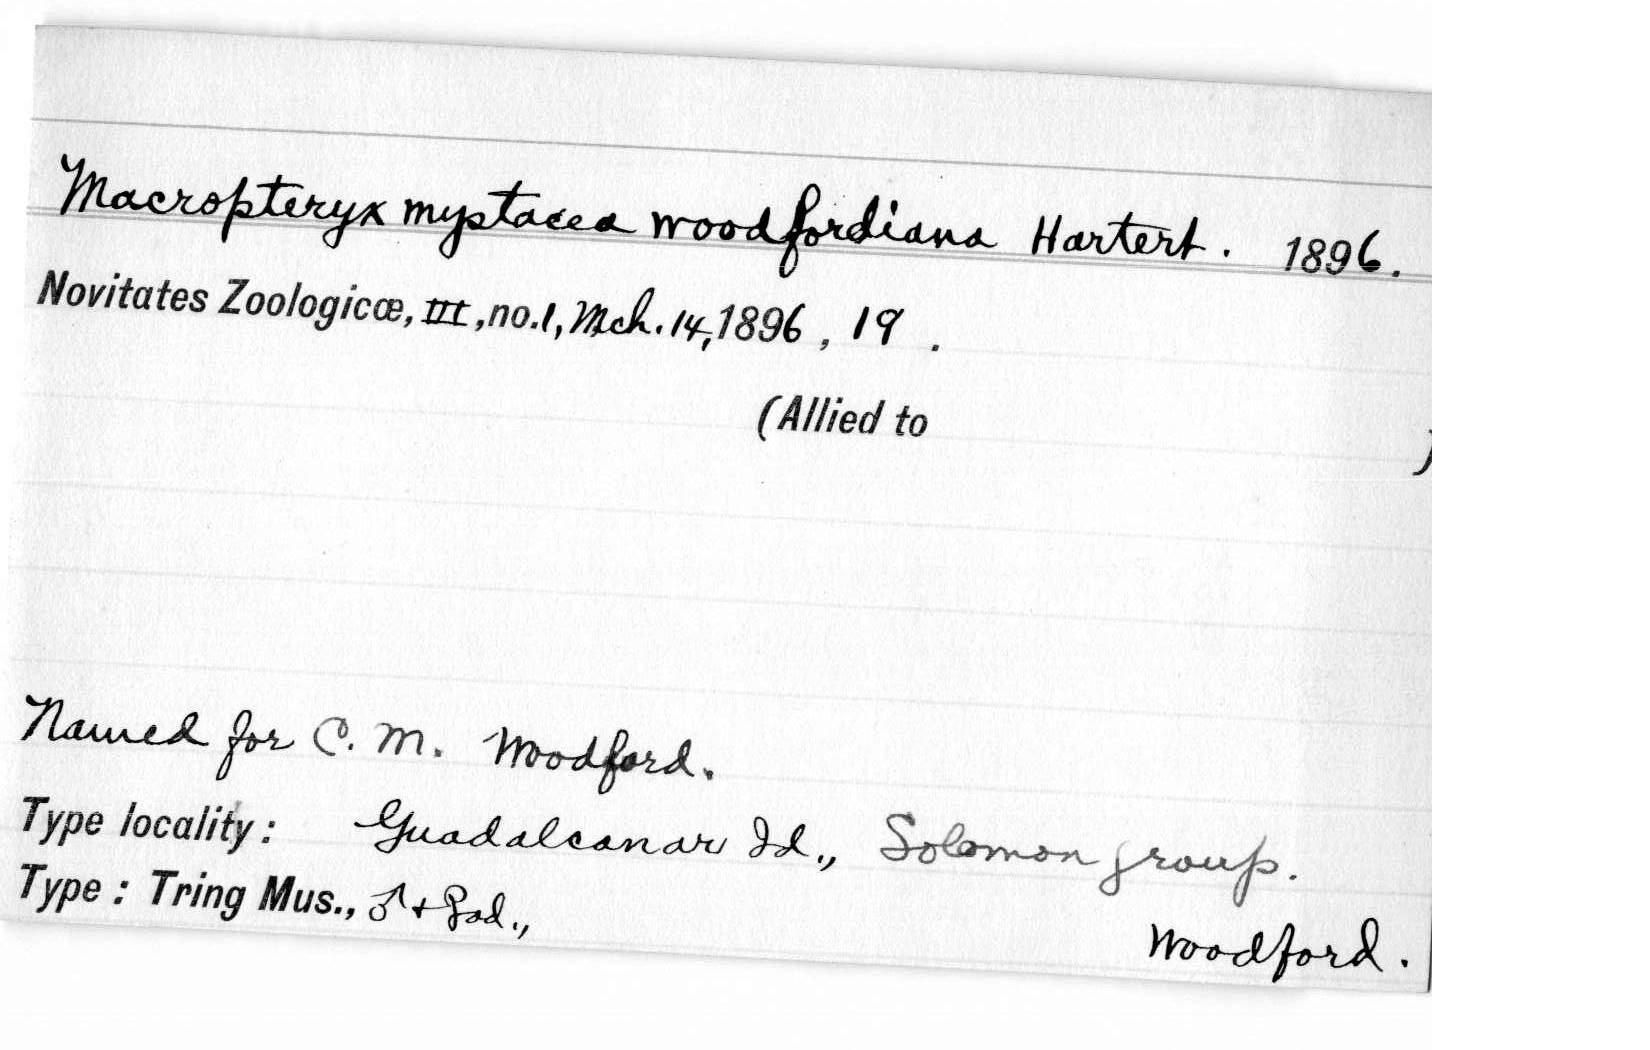 Macropteryx mystacea woodfordiana Hartert. 1896.
Novitates Zoologicæ, III, no.1, Mch. 14, 1896, 19.
(Allied to )
Named for C. M. Woodford.
Type locality: Guadalcanar Id., Solomon group.
Type: Tring Mus., ♂ + ♀ ad.,
Woodford.